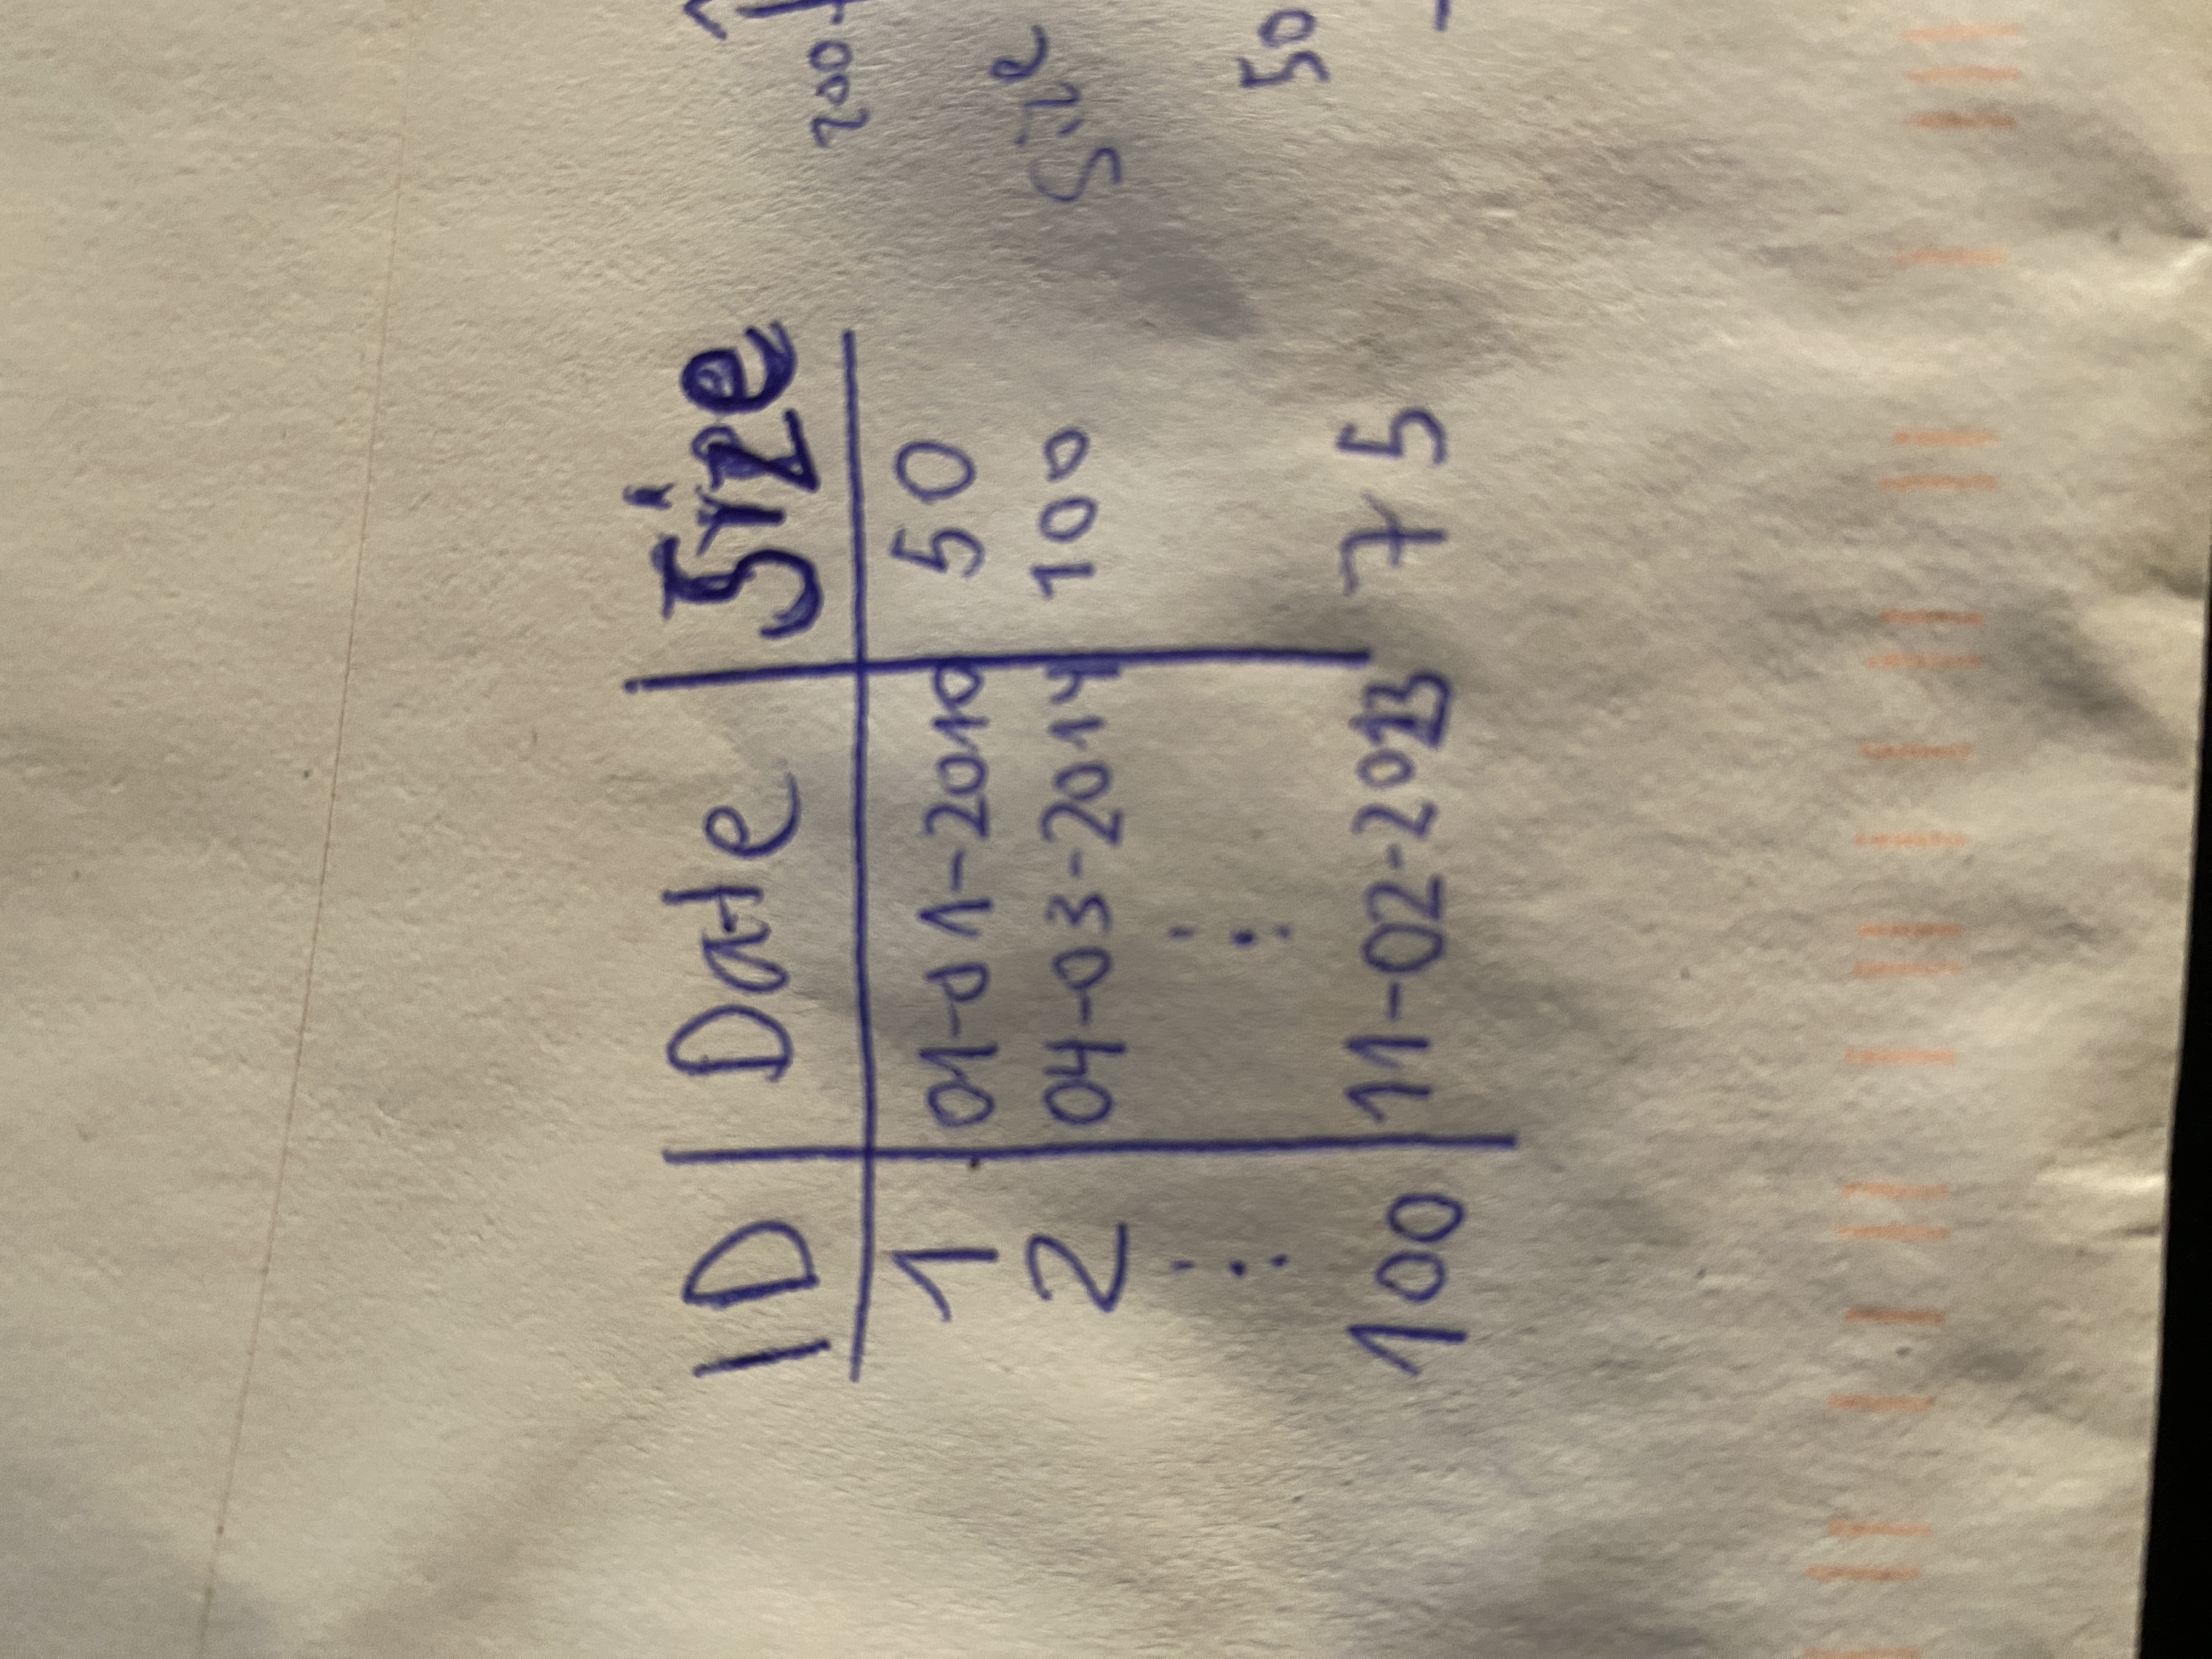 ID Date Size
1 01-01-2010 50
2 04-03-2014 100
⋮ ⋮
100 11-02-2013 75
200
Size
50